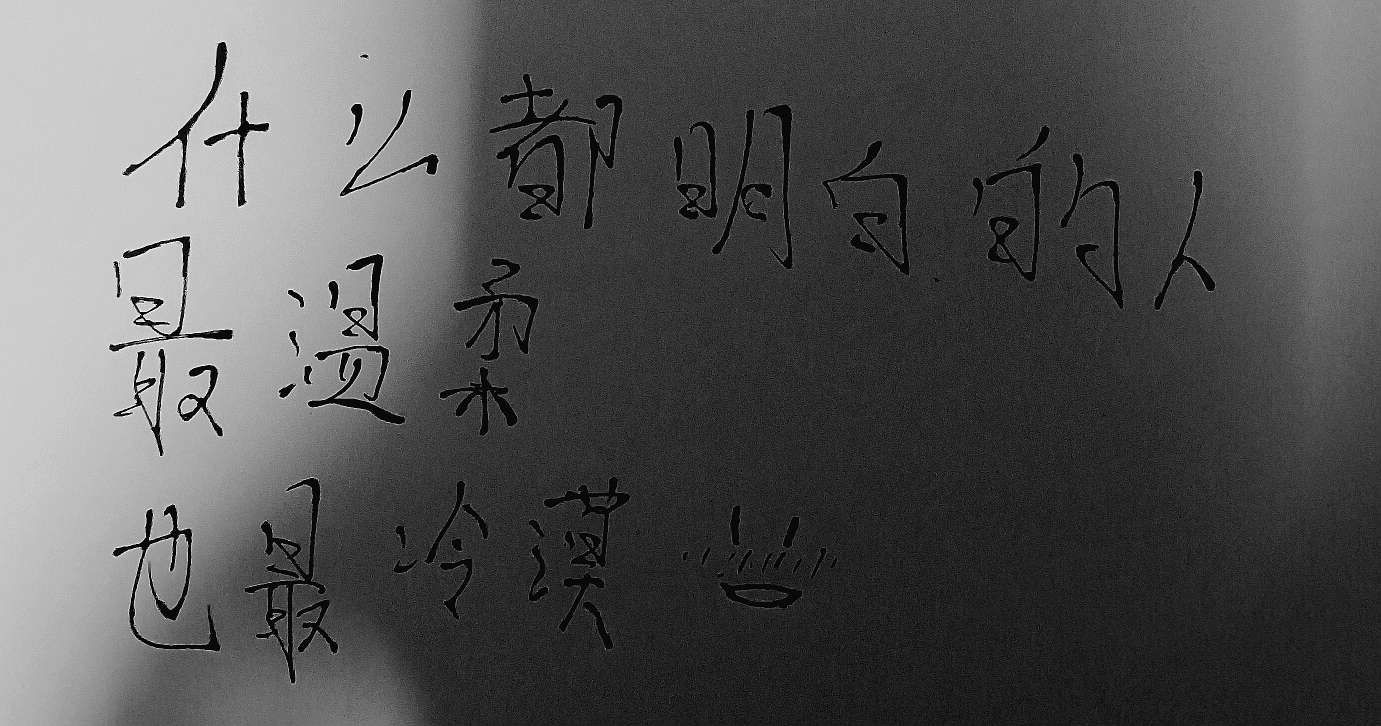 什么都明白的人
最温柔
也最冷漠